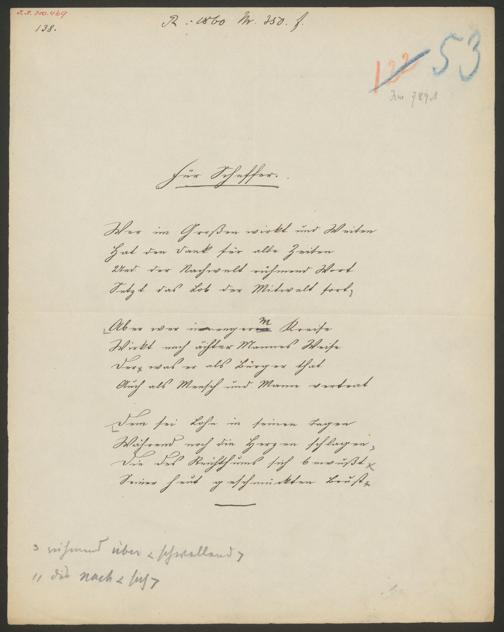 138.
R: 1860 Nr. 350. f.
132
53
Für Schaffer.
Wer im Großen wirkt und Weiten
Hat den Dank für alle Zeiten
Und der Nachwelt rühmend Wort
Setzt das Lob der Mitwelt fort;
Aber wer in engerm Kreise
Wirkt nach ächter Mannes Weise
Der, was er als Bürger that
Auch als Mensch und Mann vertrat
Dem sei Lohn in seinen Tagen
Während noch die Herzen schlagen,
Die des Reichthums sich bewußt
Seiner heut geschmückten Brust.
3 rühmend über < schwellend >
11 die nach < sich >